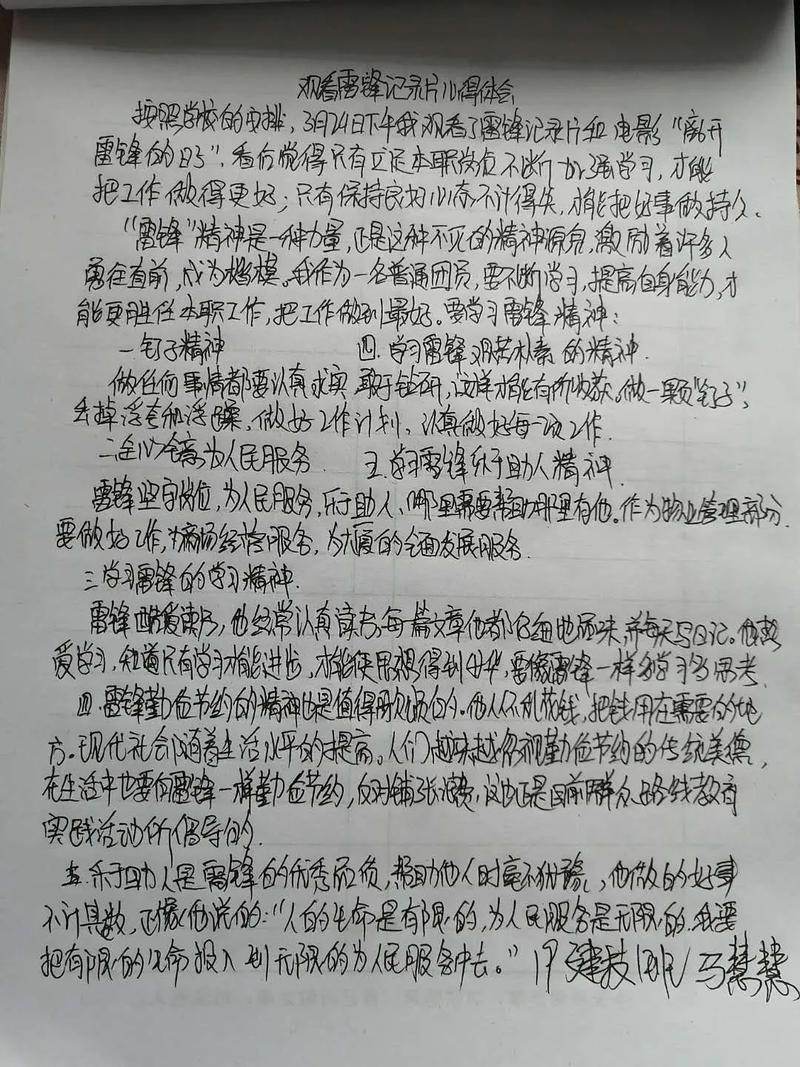 观看雷锋记录片心得体会
按照学校的安排，3月24日下午我观看了雷锋记录片和电影“离开
雷锋的日子”，看后觉得只有立足本职岗位不断加强学习，才能
把工作做得更好；只有保持良好心态不计得失，才能把好事做持久。
“雷锋”精神是一种力量，正是这种不死的精神源泉，激励着许多人
勇往直前，成为楷模。我作为一名普通团员，要不断学习，提高自身能力，才
能更胜任本职工作，把工作做到最好。要学习雷锋精神：
一钉子精神 四.学习雷锋艰苦朴素的精神.
做任何事情都要认真求实敢于钻研，这样才能有所收获。做一颗“钉子”，
去掉浮夸和浮躁，做好工作计划，认真做好每一项工作.
二全心全意为人民服务. 五.学习雷锋乐于助人精神.
雷锋坚守岗位，为人民服务，乐于助人、哪里需要帮助哪里有他。作为物业管理部分.
要做好工作，为商场经营服务，为大厦的全面发展服务.
三学习雷锋的学习精神.
雷锋酷爱读书，他经常认真读书.每篇文章他都仔细地品味，并每天写日记。他热
爱学习，知道只有学习才能进步，才能使思想得到升华，要像雷锋一样多学习多思考.
四.雷锋勤俭节约的精神也是值得歌颂的。他从不乱花钱，把钱用在需要的地
方。现代社会随着生活水平的提高。人们越来越忽视勤俭节约的传统美德，
在生活中也要向雷锋一样勤俭节约，反对铺张浪费，这也正是目前群众路线教育
实践活动所倡导的.
五.乐于助人是雷锋的优秀品质，帮助他人时毫不犹豫，他做的好事
不计其数，正像他说的：“人的生命是有限的，为人民服务是无限的.我要
把有限的生命投入到无限的为人民服务中去。” 建技1班 马慧慧